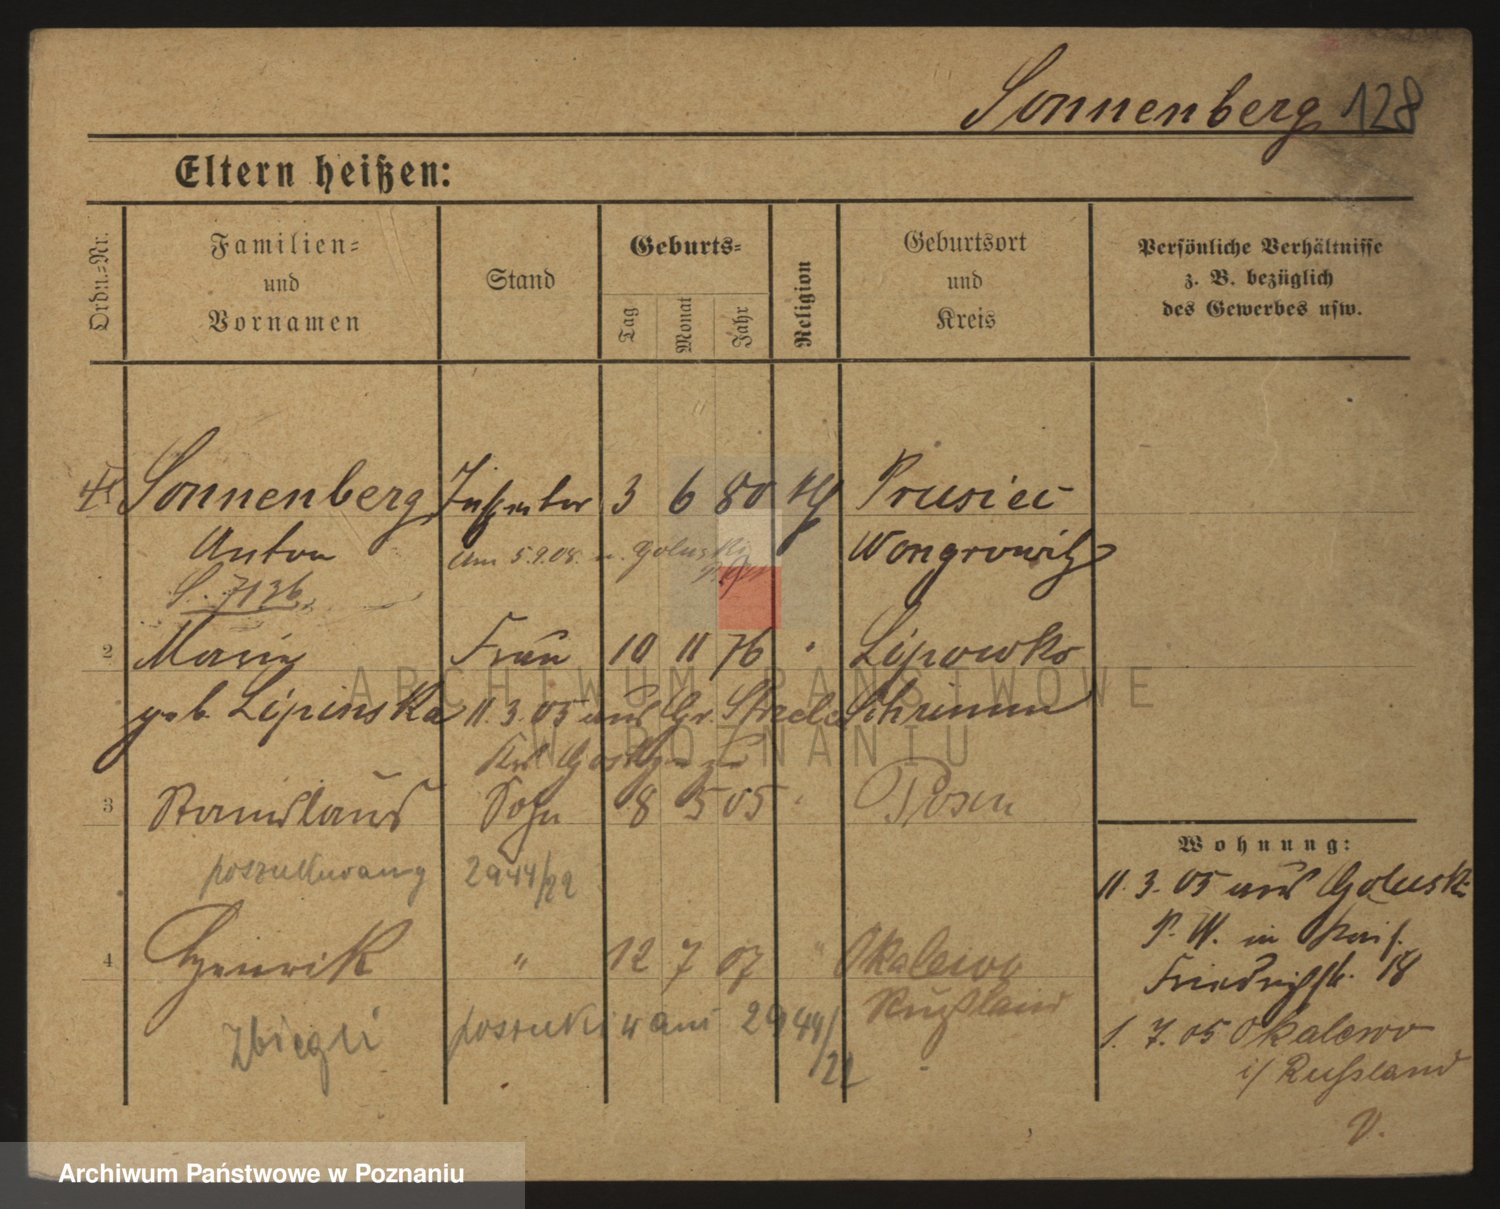 Sonnenberg 128
Eltern heißen:
Ordn.-Nr.
Familien-
und
Vornamen
Stand
Geburts-
Tag
Monat
Jahr
Religion
Geburtsort
und
Kreis
Persönliche Verhältnisse
z. B. bezüglich
des Gewerbes usw.
Sonnenberg 3 6 80 Prusiec
Anton am 5.9.08. Wongrowitz
S. 7136
2 Maria Frau 10 11 76 Lipowko
geb. Lipinska 11.3.05 aus Gr. Strzelce Schrimm
Krs. Gostyn
3 Stanislaus Sohn 8 5 05 Posen
poszukiwany 2944/22
4 Henrik " 12 7 07 " Okalewo
Rußland
zbiegli poszukiwani 2944/22
Wohnung:
11.3.05 aus Goluski
P. W. in
Friedrichstr. 18
1. 7. 05 Okalewo
i/ Russland
V.
ARCHIWUM PAŃSTWOWE
W POZNANIU
Archiwum Państwowe w Poznaniu